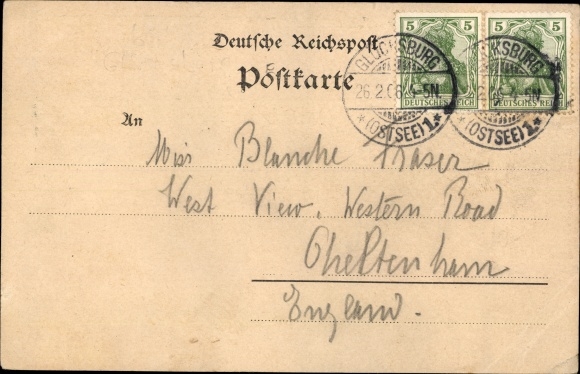 Deutsche Reichspost
Postkarte
5 5 5 5
DEUTSCHES REICH DEUTSCHES REICH
GLÜCKSBURG
26.2.08. 4-5N.
*(OSTSEE)1.*
(OSTSEE)1.*
An
Miss Blanche Fraser
West View. Western Road
Cheltenham
England.